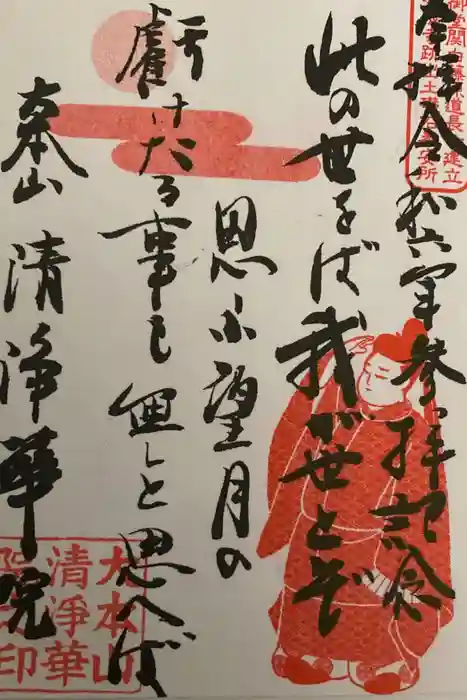 奉拝 令和六年参拝記念
此の世をば我が世とぞ
思ふ望月の
虧けたる事も無しと思へば
大本山 清浄華院
御堂関白藤原道長 建立
大本山
清浄華
院之印